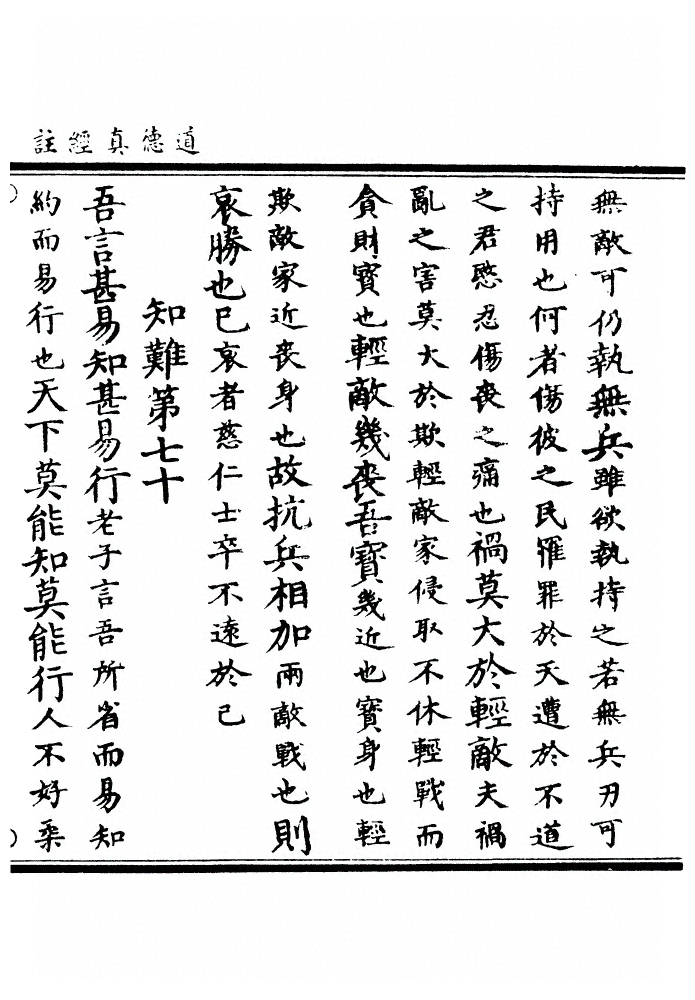 道德真經註
無敵可仍執無兵雖欲執持之若無兵刃可
持用也何者傷彼之民罹罪於天遭於不道
之君愍忍傷喪之痛也禍莫大於輕敵夫禍
亂之害莫大於欺輕敵家侵取不休輕戰而
貪財寶也輕敵幾喪吾寶幾近也寶身也輕
欺敵家近喪身也故抗兵相加兩敵戰也則
哀勝也已哀者慈仁士卒不遠於己
知難第七十
吾言甚易知甚易行老子言吾所省而易知
約而易行也天下莫能知莫能行人不好柔